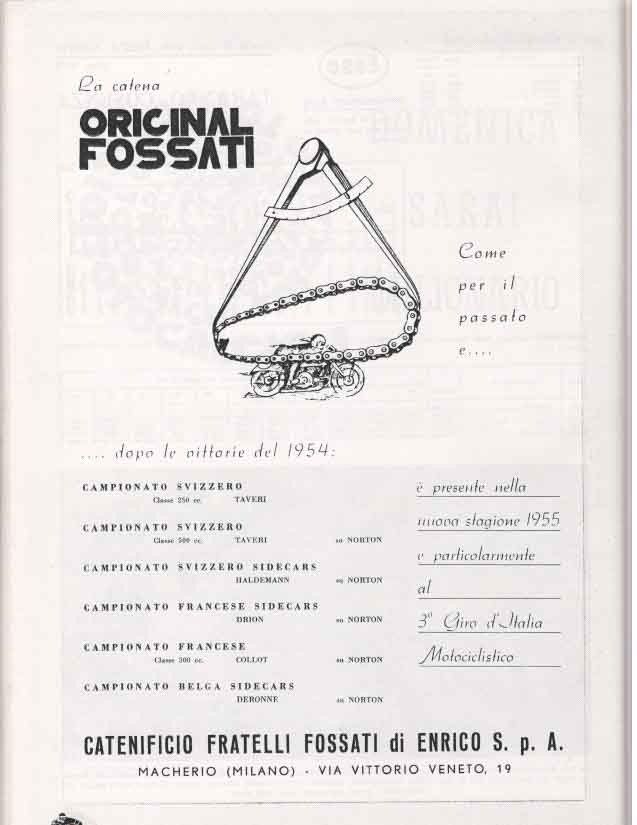 La catena
ORIGINAL
FOSSATI
Come
per il
passato
e....
.... dopo le vittorie del 1954:
CAMPIONATO SVIZZERO
Classe 250 cc. TAVERI
CAMPIONATO SVIZZERO
Classe 500 cc. TAVERI su NORTON
CAMPIONATO SVIZZERO SIDECARS
HALDEMANN su NORTON
CAMPIONATO FRANCESE SIDECARS
DRION su NORTON
CAMPIONATO FRANCESE
Classe 500 cc. COLLOT su NORTON
CAMPIONATO BELGA SIDECARS
DERONNE su NORTON
è presente nella
nuova stagione 1955
e particolarmente
al
3° Giro d'Italia
Motociclistico
CATENIFICIO FRATELLI FOSSATI di ENRICO S. p. A.
MACHERIO (MILANO) - VIA VITTORIO VENETO, 19